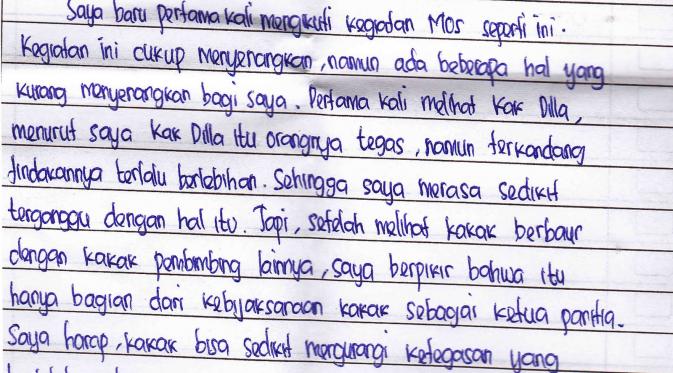 Saya baru pertama kali mengikuti kegiatan MOS seperti ini.
Kegiatan ini cukup menyenangkan, namun ada beberapa hal yang
kurang menyenangkan bagi saya. Pertama kali melihat Kak Dilla,
menurut saya Kak Dilla itu orangnya tegas, namun terkandang
tindakannya terlalu berlebihan. Sehingga saya merasa sedikit
terganggu dengan hal itu. Tapi, setelah melihat kakak berbaur
dengan kakak pembimbing lainnya, saya berpikir bahwa itu
hanya bagian dari kebijaksanaan kakak sebagai ketua panitia.
Saya harap, kakak bisa sedikit mengurangi ketegasan yang